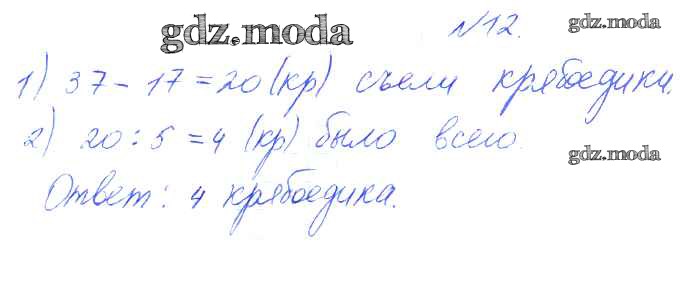 gdz.moda
№12.
gdz.moda
1) 37 - 17 = 20 (кр) съели крябоедики.
2) 20 : 5 = 4 (кр) было всего.
gdz.moda
Ответ: 4 крябоедика.